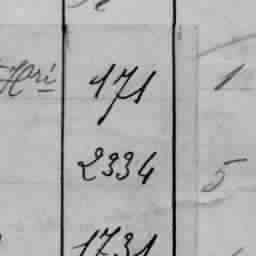 Hri 171 1
2334 5
1731